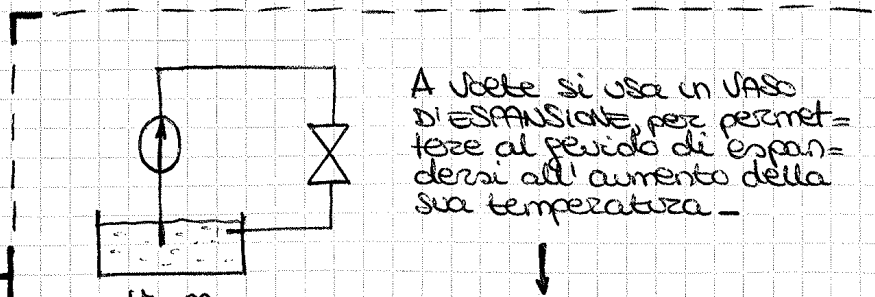 A volte si usa un VASO
D'ESPANSIONE, per permet=
tere al fluido di espan=
dersi all'aumento della
sua temperatura_